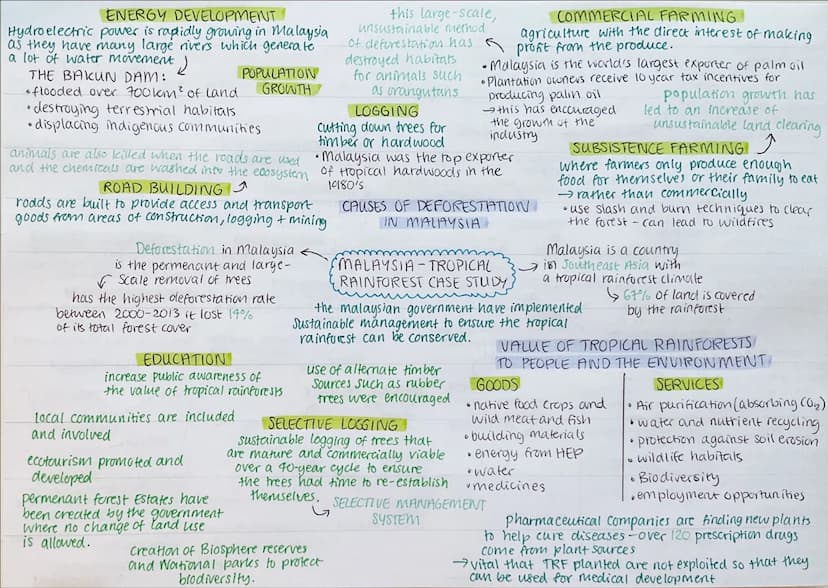 ENERGY DEVELOPMENT
Hydroelectric power is rapidly growing in Malaysia
as they have many large rivers which generate
a lot of water movement
THE BAKUN DAM:
• flooded over 700km² of land
• destroying terrestrial habitats
• displacing indigenous communities
POPULATION
GROWTH
this large-scale,
unsustainable method
of deforestation has
destroyed habitats
for animals such
as orangutans
LOGGING
cutting down trees for
timber or hardwood
• Malaysia was the top exporter
of tropical hardwoods in the
1980's
COMMERCIAL FARMING
agriculture with the direct interest of making
profit from the produce.
• Malaysia is the world's largest exporter of palm oil
• Plantation owners receive 10 year tax incentives for
producing palm oil
→ this has encouraged
the growth of the
industry
population growth has
led to an increase of
unsustainable land clearing
SUBSISTENCE FARMING
where farmers only produce enough
food for themselves or their family to eat
→ rather than commercially
• use slash and burn techniques to clear
the forest - can lead to wildfires
animals are also killed when the roads are used
and the chemicals are washed into the ecosystem
ROAD BUILDING
roads are built to provide access and transport
goods from areas of construction, logging + mining
CAUSES OF DEFORESTATION
IN MALAYSIA
Deforestation in Malaysia
is the permenant and large-
scale removal of trees
has the highest deforestation rate
between 2000-2013 it lost 14%
of its total forest cover
MALAYSIA - TROPICAL
RAINFOREST CASE STUDY
Malaysia is a country
in Southeast Asia with
a tropical rainforest climate
67% of land is covered
by the rainforest
the malaysian government have implemented
sustainable management to ensure the tropical
rainforest can be conserved.
EDUCATION
increase public awareness of
the value of tropical rainforests
use of alternate timber
sources such as rubber
trees were encouraged
local communities are included
and involved
ecotourism promoted and
developed
permenant Forest Estates have
been created by the government
where no change of land use
is allowed.
creation of Biosphere reserves
and National parks to protect
biodiversity.
SELECTIVE LOGGING
sustainable logging of trees that
are mature and commercially viable
over a 40-year cycle to ensure
the trees had time to re-establish
themselves.
SELECTIVE MANAGEMENT
SYSTEM
VALUE OF TROPICAL RAINFORESTS
TO PEOPLE AND THE ENVIRONMENT
GOODS
• native food crops and
wild meat and fish
• building materials
• energy from HEP
• water
• medicines
SERVICES
• Air purification (absorbing CO₂)
• water and nutrient recycling
• protection against soil erosion
• wildlife habitats
• Biodiversity
• employment opportunities
pharmaceutical companies are finding new plants
to help cure diseases - over 120 prescription drugs
come from plant sources
→ vital that TRF planted are not exploited so that they
can be used for medical development